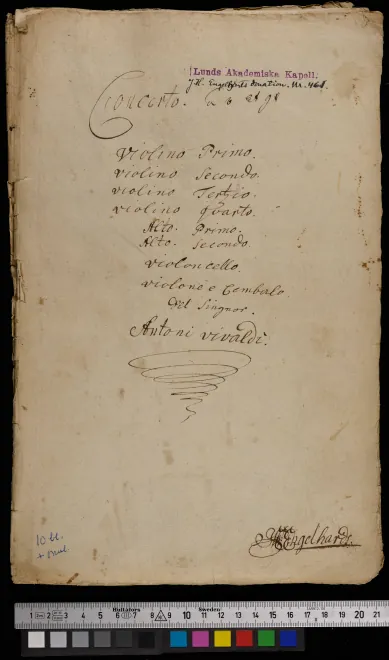 Lunds Akademiska Kapell.
J.H. Engelharts donation. Nr. 468.
Concerto. a
Violino Primo.
violino Secondo.
violino Tertzio.
violino Quarto.
Alto. Primo.
Alto. Secondo
violoncello.
violone e Cembalo
Del Singnor.
Antoni vivaldi.
Engelhardt.
10 bl.
1 2 3 4 5 6 7 8 9 10 11 12 13 14 15 16 17 18 19 20 21
Bultfors Sweden